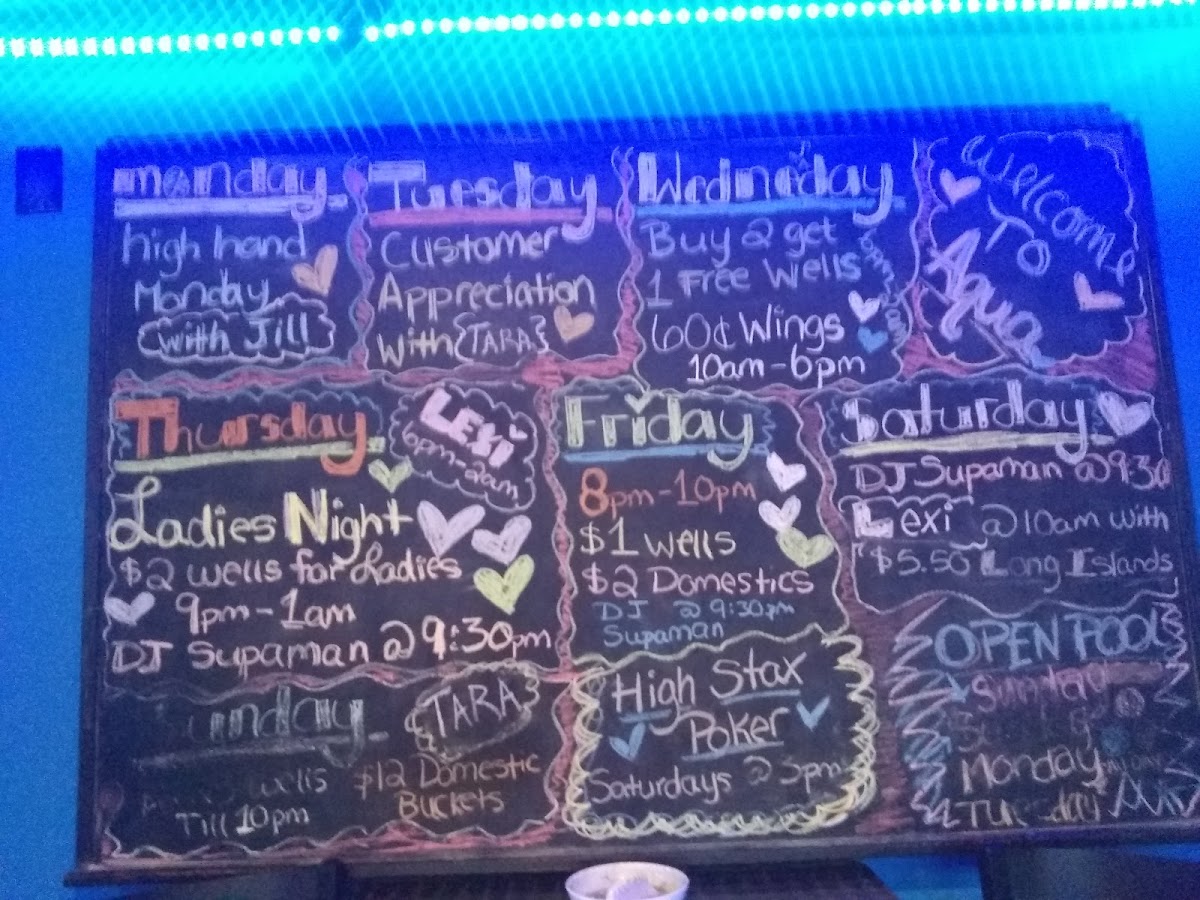 monday
high hand
Monday
with Jill
Tuesday
Customer
Appreciation
with {TARA}
Wedneday
Buy 2 get
1 Free Wells
60¢ Wings
10am-6pm
Welcome
To
Aqua
Thursday
Lexi
6pm-2am
Ladies Night
$2 wells for Ladies
9pm-1am
DJ Supaman @ 9:30pm
Friday
8pm-10pm
$1 wells
$2 Domestics
DJ @ 9:30pm
Supaman
Saturday
DJ Supaman @ 9:30
Lexi @ 10am with
$5.50 Long Islands
Sunday
TARA
Till 10pm
$12 Domestic
Buckets
High Stax
Poker
Saturdays @ 3pm
OPEN POOL
Sunday
Monday
Tuesday